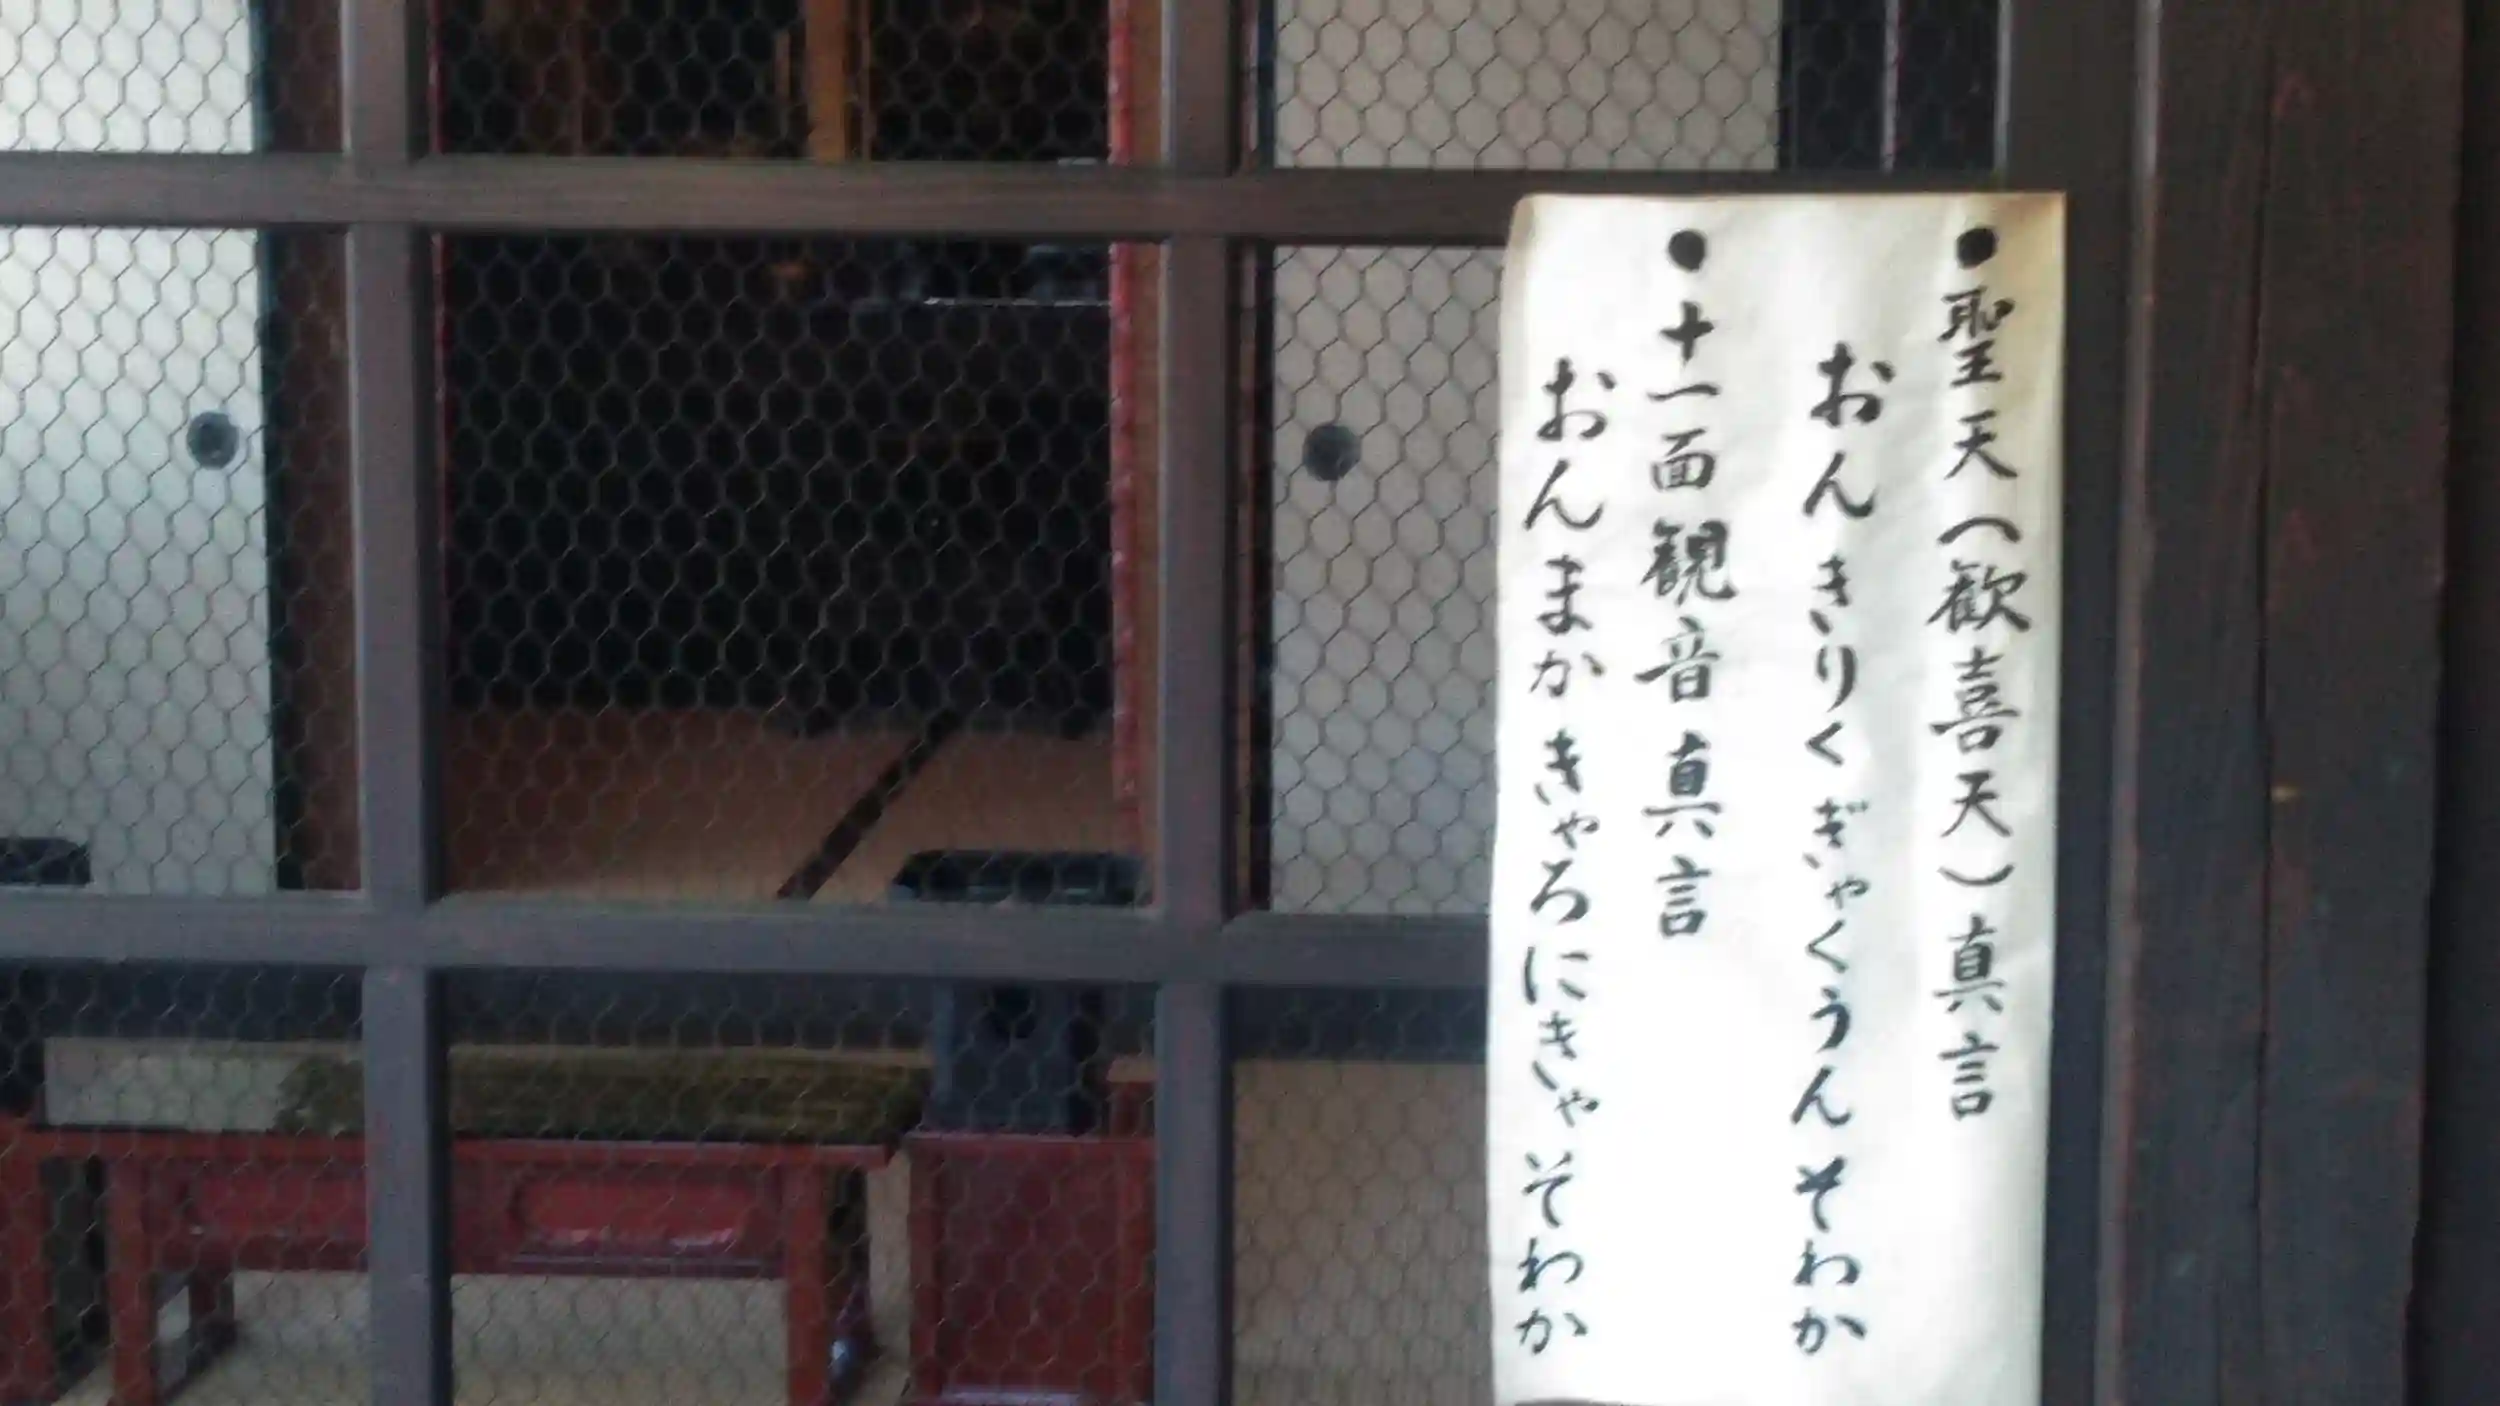 ●聖天(歓喜天)真言
おんきりくぎゃくうんそわか
●十一面観音真言
おんまかきゃろにきゃそわか